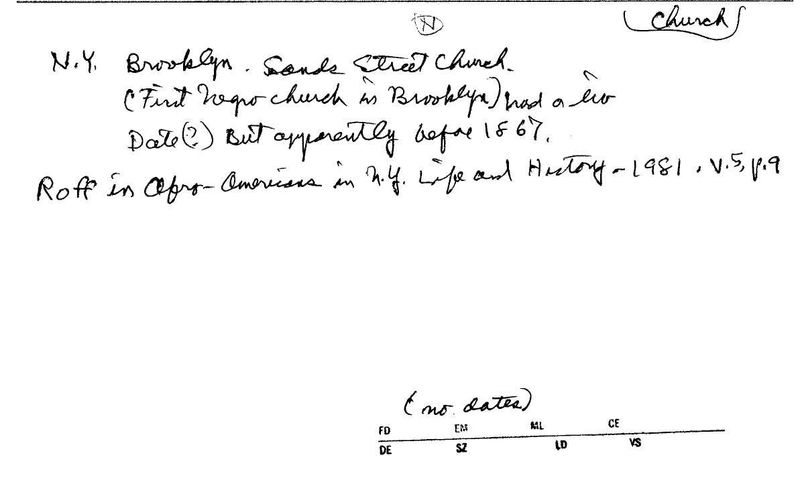 N
Church
N.Y. Brooklyn. Sands Street Church.
(First Negro church in Brooklyn) had a lib
Date(?) But apparently before 1867.
Roff in Afro-Americans in N.Y. Life and History - 1981, V.5, p.9
(no dates)
FD EM ML CE
DE SZ LD VS